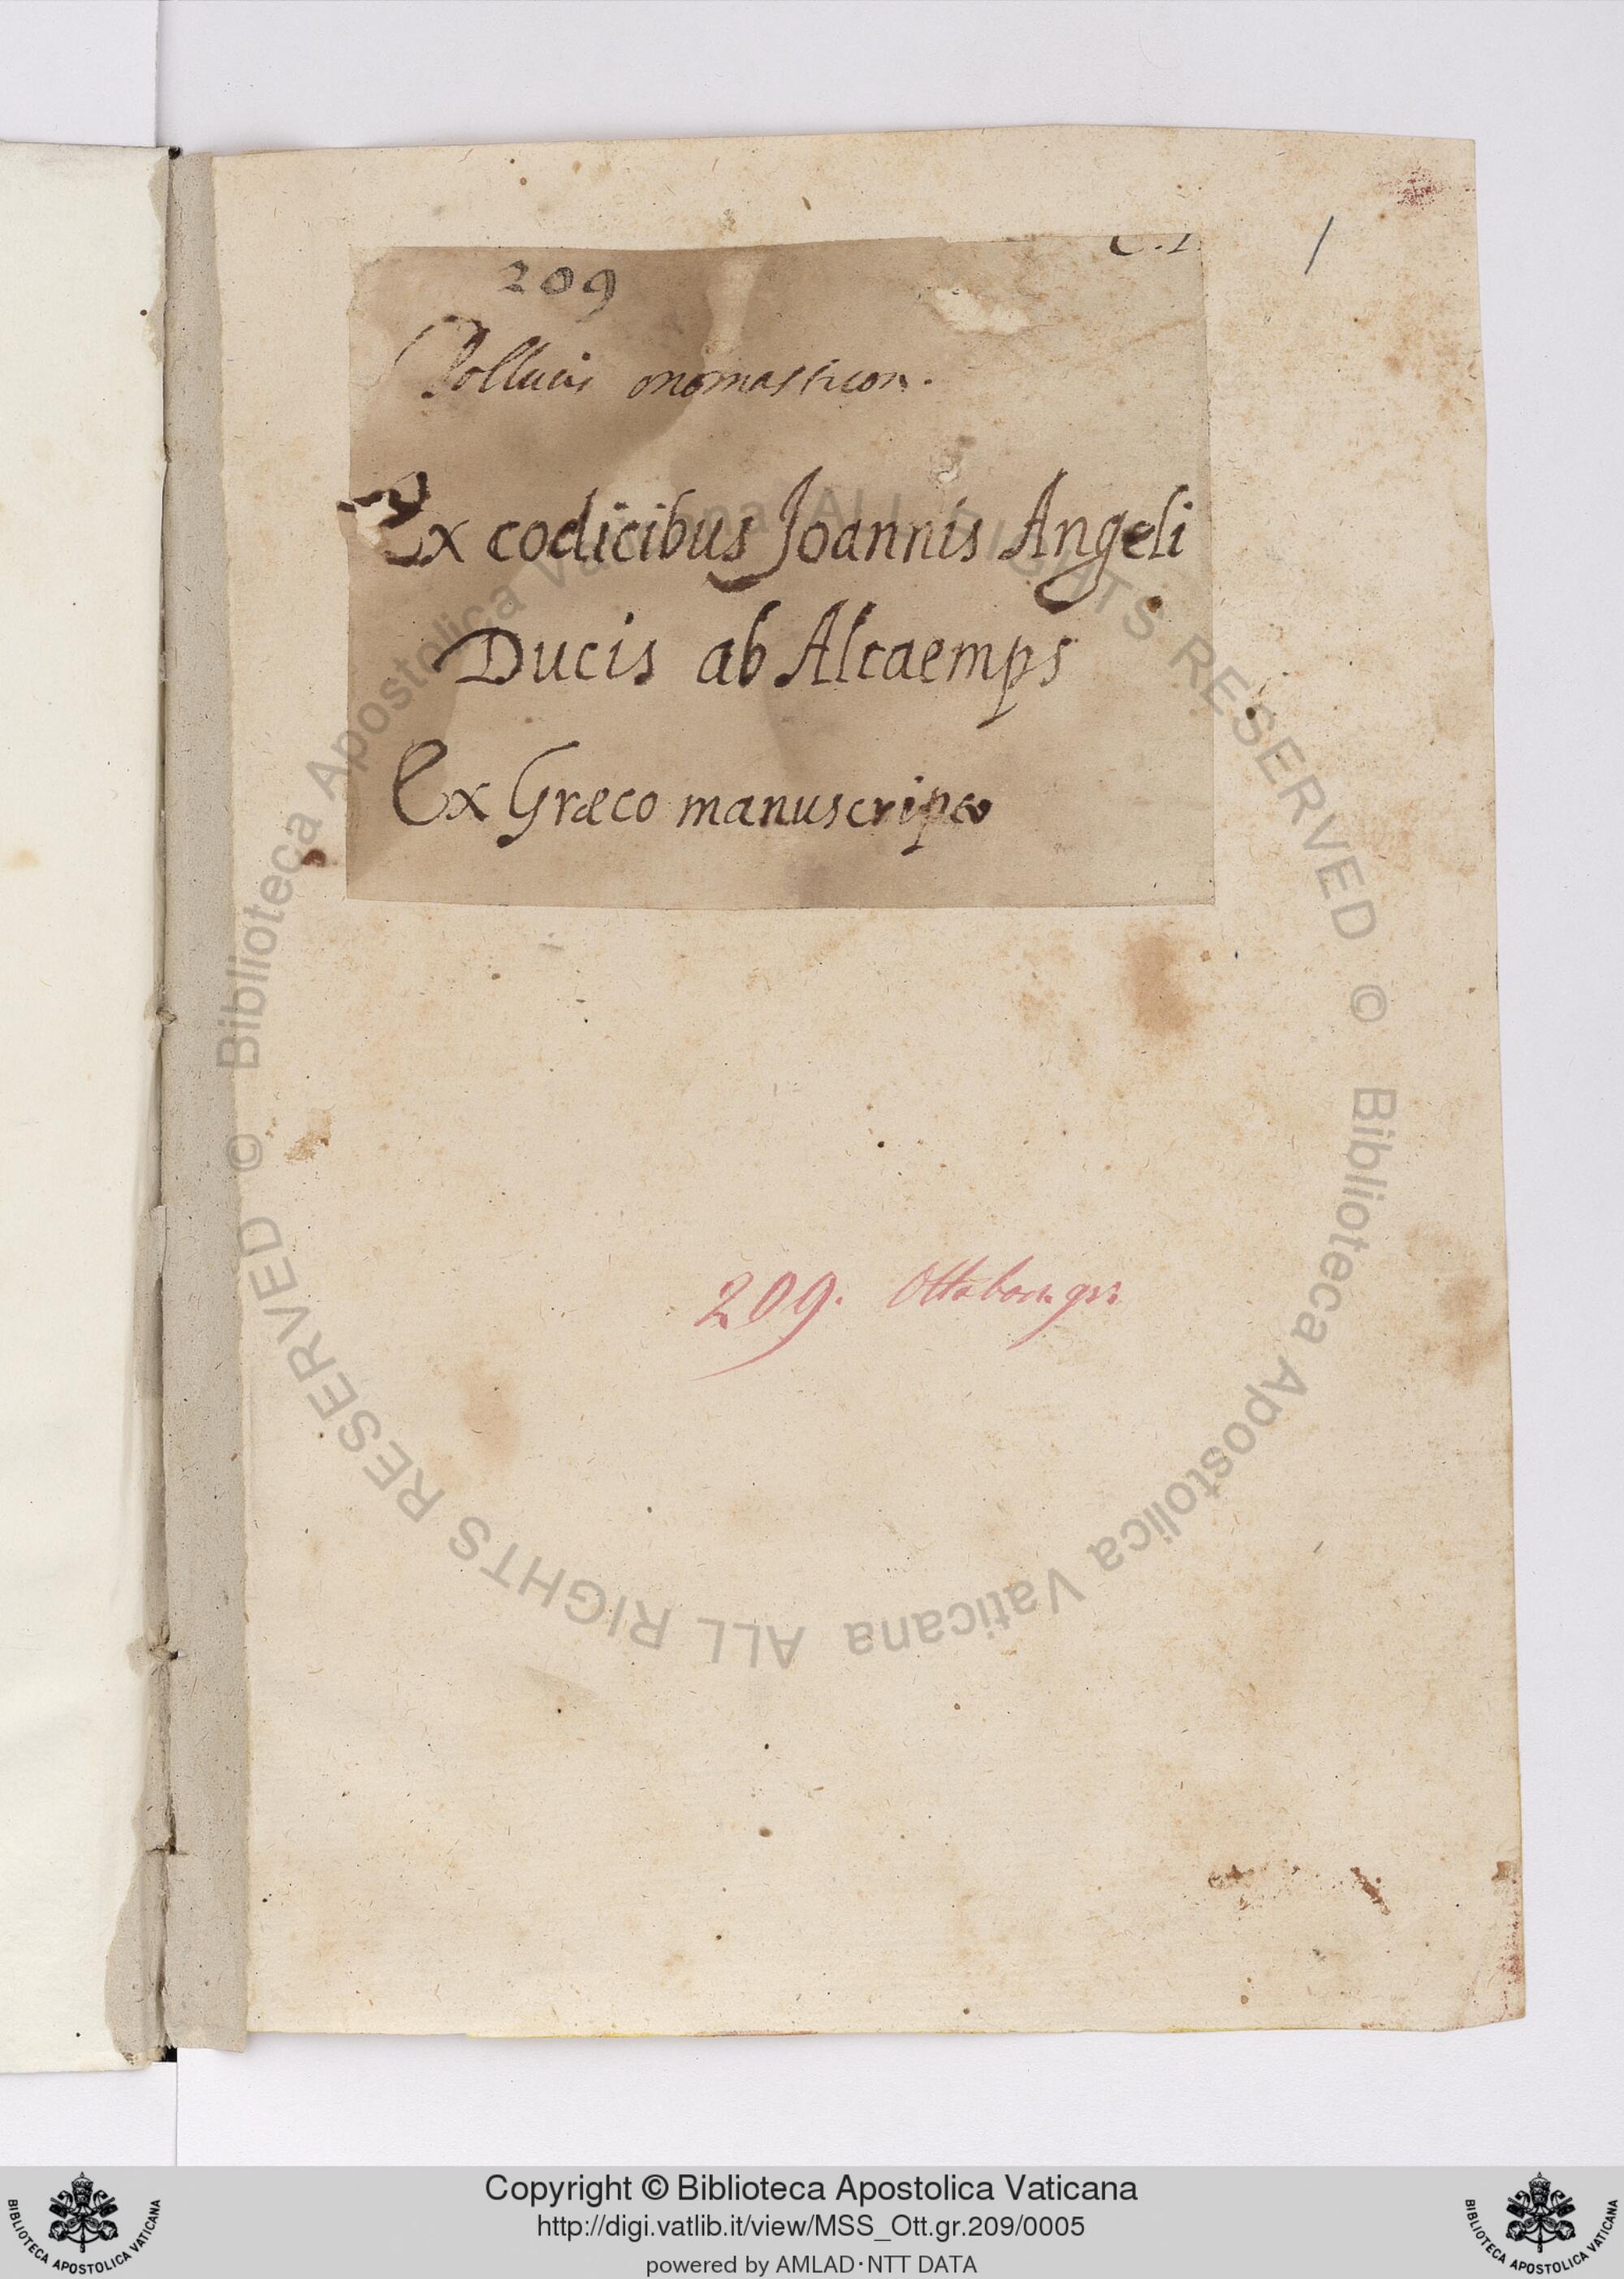 C. I.
1
209
Pollucis onomasticon.
Ex codicibus Joannis Angeli
Ducis ab Altaemps
Ex Græco manuscripto
209. Ottobon. gr:
© Biblioteca Apostolica Vaticana ALL RIGHTS RESERVED © Biblioteca Apostolica Vaticana ALL RIGHTS RESERVED
Copyright © Biblioteca Apostolica Vaticana
http://digi.vatlib.it/view/MSS_Ott.gr.209/0005
powered by AMLAD·NTT DATA
BIBLIOTECA APOSTOLICA VATICANA
BIBLIOTECA APOSTOLICA VATICANA